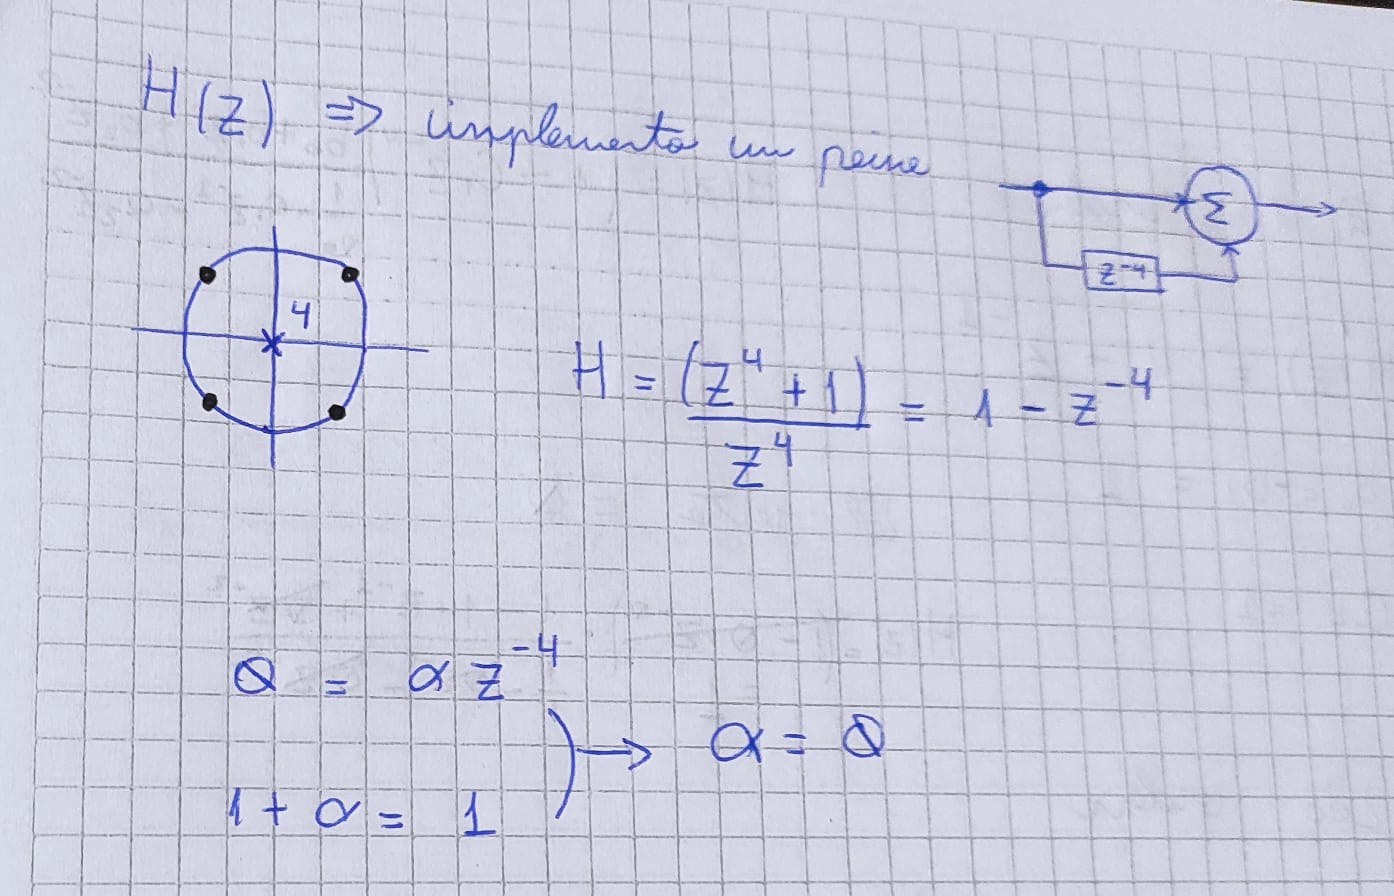 H(z) => implemento un peine
Σ
z⁻⁴
4
H = (z⁴ + 1) / z⁴ = 1 - z⁻⁴
0 = α z⁻⁴
→ α = 0
1 + α = 1